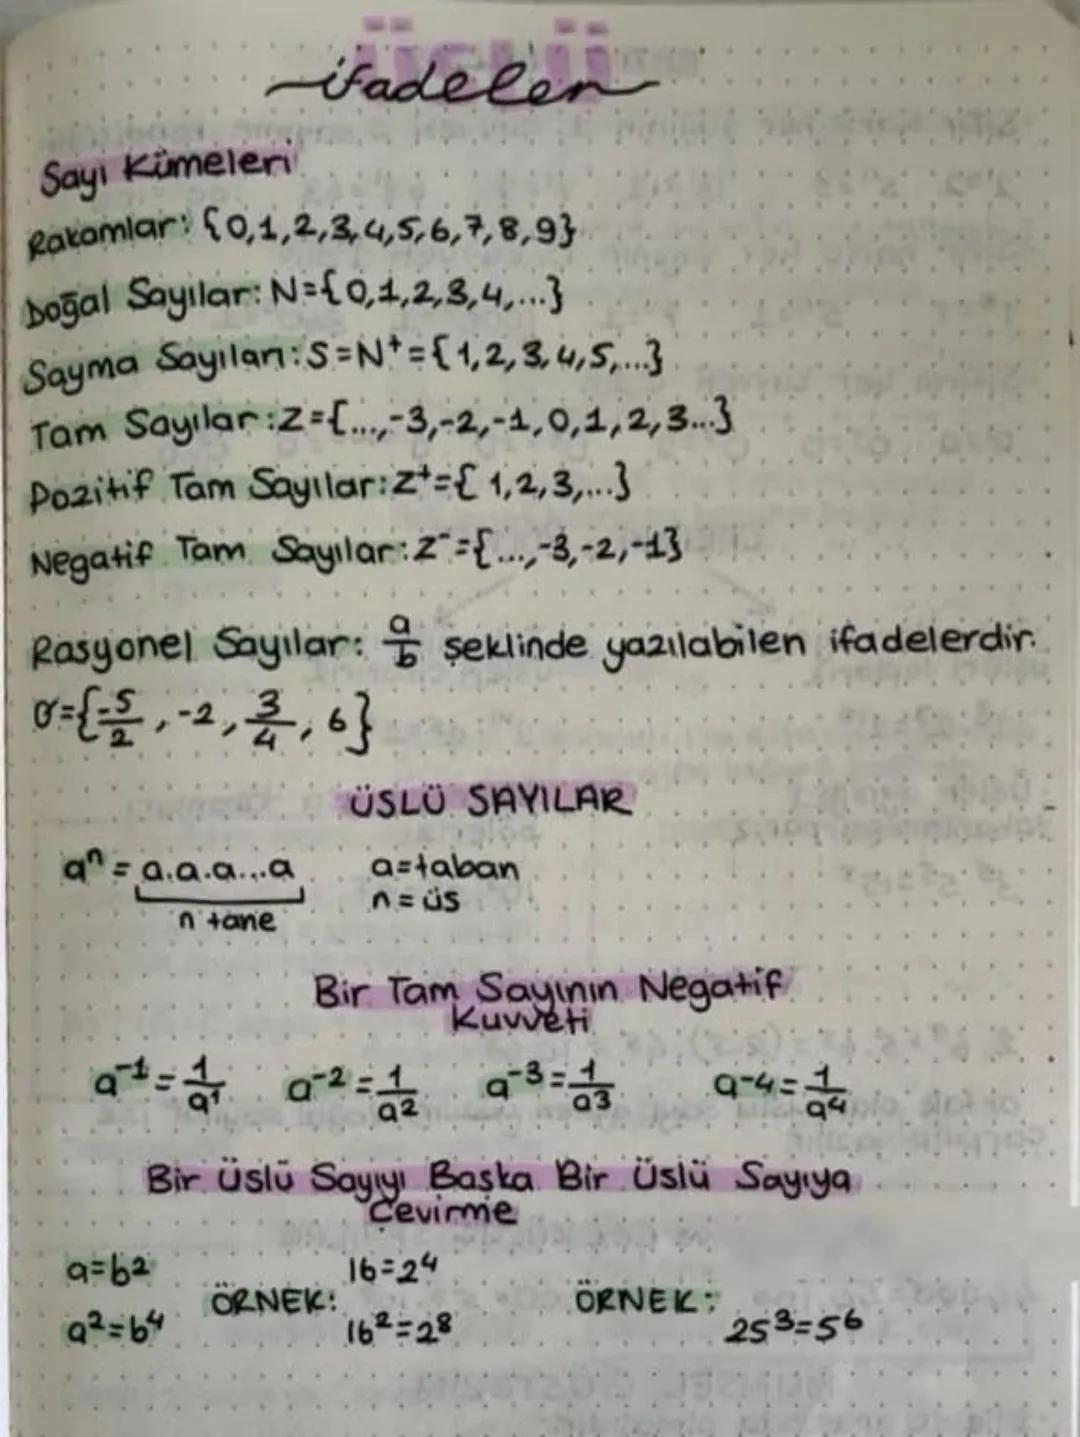 üslü
ifadeler
Sayı Kümeleri
Rakamlar: {0,1,2,3,4,5,6,7,8,9}
Doğal Sayılar: N={0,1,2,3,4,...}
Sayma Sayıları: S=N⁺={1,2,3,4,5,...}
Tam Sayılar: Z={...,-3,-2,-1,0,1,2,3...}
Pozitif Tam Sayılar: Z⁺={1,2,3,...}
Negatif Tam Sayılar: Z⁻={...,-3,-2,-1}
Rasyonel Sayılar: a/b şeklinde yazılabilen ifadelerdir.
Q={-5/2, -2, 3/4, 6}
ÜSLÜ SAYILAR
aⁿ = a.a.a...a a=taban
n tane n=üs
Bir Tam Sayının Negatif
Kuvveti
a⁻¹=1/a¹ a⁻²=1/a² a⁻³=1/a³ a⁻⁴=1/a⁴
Bir Üslü Sayıyı Başka Bir Üslü Sayıya
Çevirme
a=b² 16=2⁴
ÖRNEK: ÖRNEK:
a²=b⁴ 16²=2⁸ 25³=5⁶